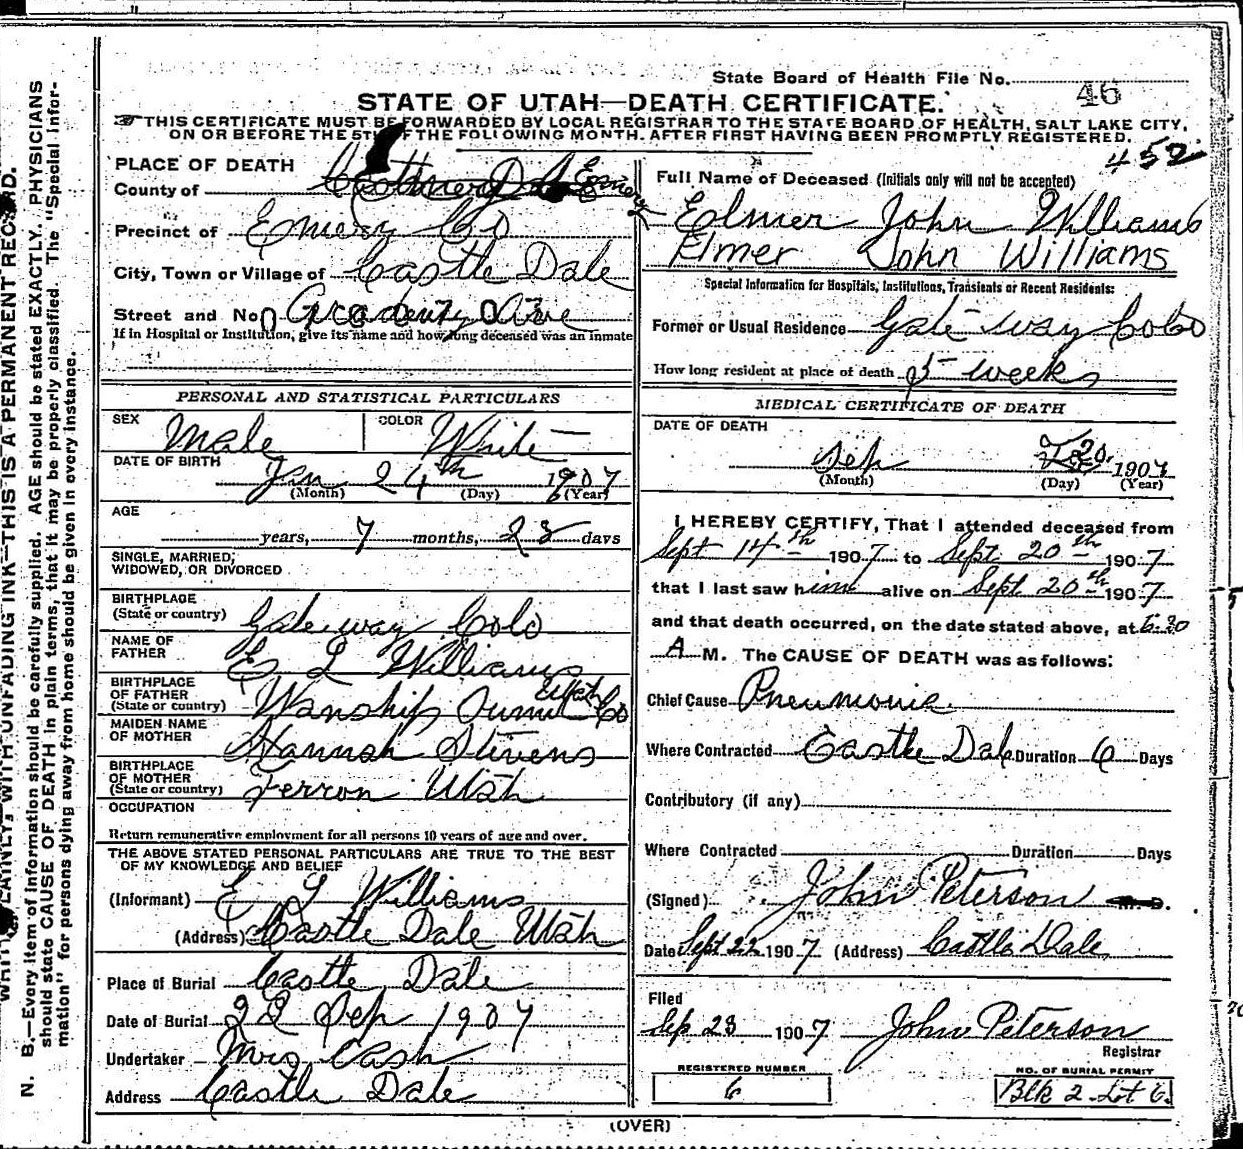 State Board of Health File No. 46
STATE OF UTAH—DEATH CERTIFICATE.
THIS CERTIFICATE MUST BE FORWARDED BY LOCAL REGISTRAR TO THE STATE BOARD OF HEALTH, SALT LAKE CITY,
ON OR BEFORE THE 5TH OF THE FOLLOWING MONTH. AFTER FIRST HAVING BEEN PROMPTLY REGISTERED.
452
PLACE OF DEATH
County of Emery
Precinct of Emery Co
City, Town or Village of Castle Dale
Street and No. Ave
If in Hospital or Institution, give its name and how long deceased was an inmate
PERSONAL AND STATISTICAL PARTICULARS
SEX Male COLOR White
DATE OF BIRTH
Jan 24th 1907
(Month) (Day) (Year)
AGE
years, 7 months, 28 days
SINGLE, MARRIED,
WIDOWED, OR DIVORCED
BIRTHPLACE
(State or country) Gate way Colo
NAME OF
FATHER E L Williams
BIRTHPLACE
OF FATHER
(State or country) Wanship Sumit Co Utah
MAIDEN NAME
OF MOTHER Hannah Stevens
BIRTHPLACE
OF MOTHER
(State or country) Ferron Utah
OCCUPATION
Return remunerative employment for all persons 10 years of age and over.
THE ABOVE STATED PERSONAL PARTICULARS ARE TRUE TO THE BEST
OF MY KNOWLEDGE AND BELIEF
(Informant) E L Williams
(Address) Castle Dale Utah
Place of Burial Castle Dale
Date of Burial 22 Sep 1907
Undertaker Mrs Cash
Address Castle Dale
Full Name of Deceased (Initials only will not be accepted)
Elmer John Williams
Elmer John Williams
Special Information for Hospitals, Institutions, Transients or Recent Residents:
Former or Usual Residence Gate way Colo
How long resident at place of death 5 weeks
MEDICAL CERTIFICATE OF DEATH
DATE OF DEATH
Sep 20 1907
(Month) (Day) (Year)
I HEREBY CERTIFY, That I attended deceased from
Sept 14th 1907 to Sept 20th 1907
that I last saw him alive on Sept 20th 1907
and that death occurred, on the date stated above, at 6:30
A M. The CAUSE OF DEATH was as follows:
Chief Cause Pneumonia
Where Contracted Castle Dale Duration 6 Days
Contributory (if any)
Where Contracted Duration Days
(Signed) John Peterson M. D.
Date Sept 22 1907 (Address) Castle Dale
Filed
Sep 23 1907 John Peterson
Registrar
REGISTERED NUMBER
6
NO. OF BURIAL PERMIT
Blk 2 Lot 6
(OVER)
WRITE PLAINLY, WITH UNFADING INK—THIS IS A PERMANENT RECORD.
N. B.—Every item of information should be carefully supplied. AGE should be stated EXACTLY. PHYSICIANS
should state CAUSE OF DEATH in plain terms, that it may be properly classified. The "Special Infor-
mation" for persons dying away from home should be given in every instance.